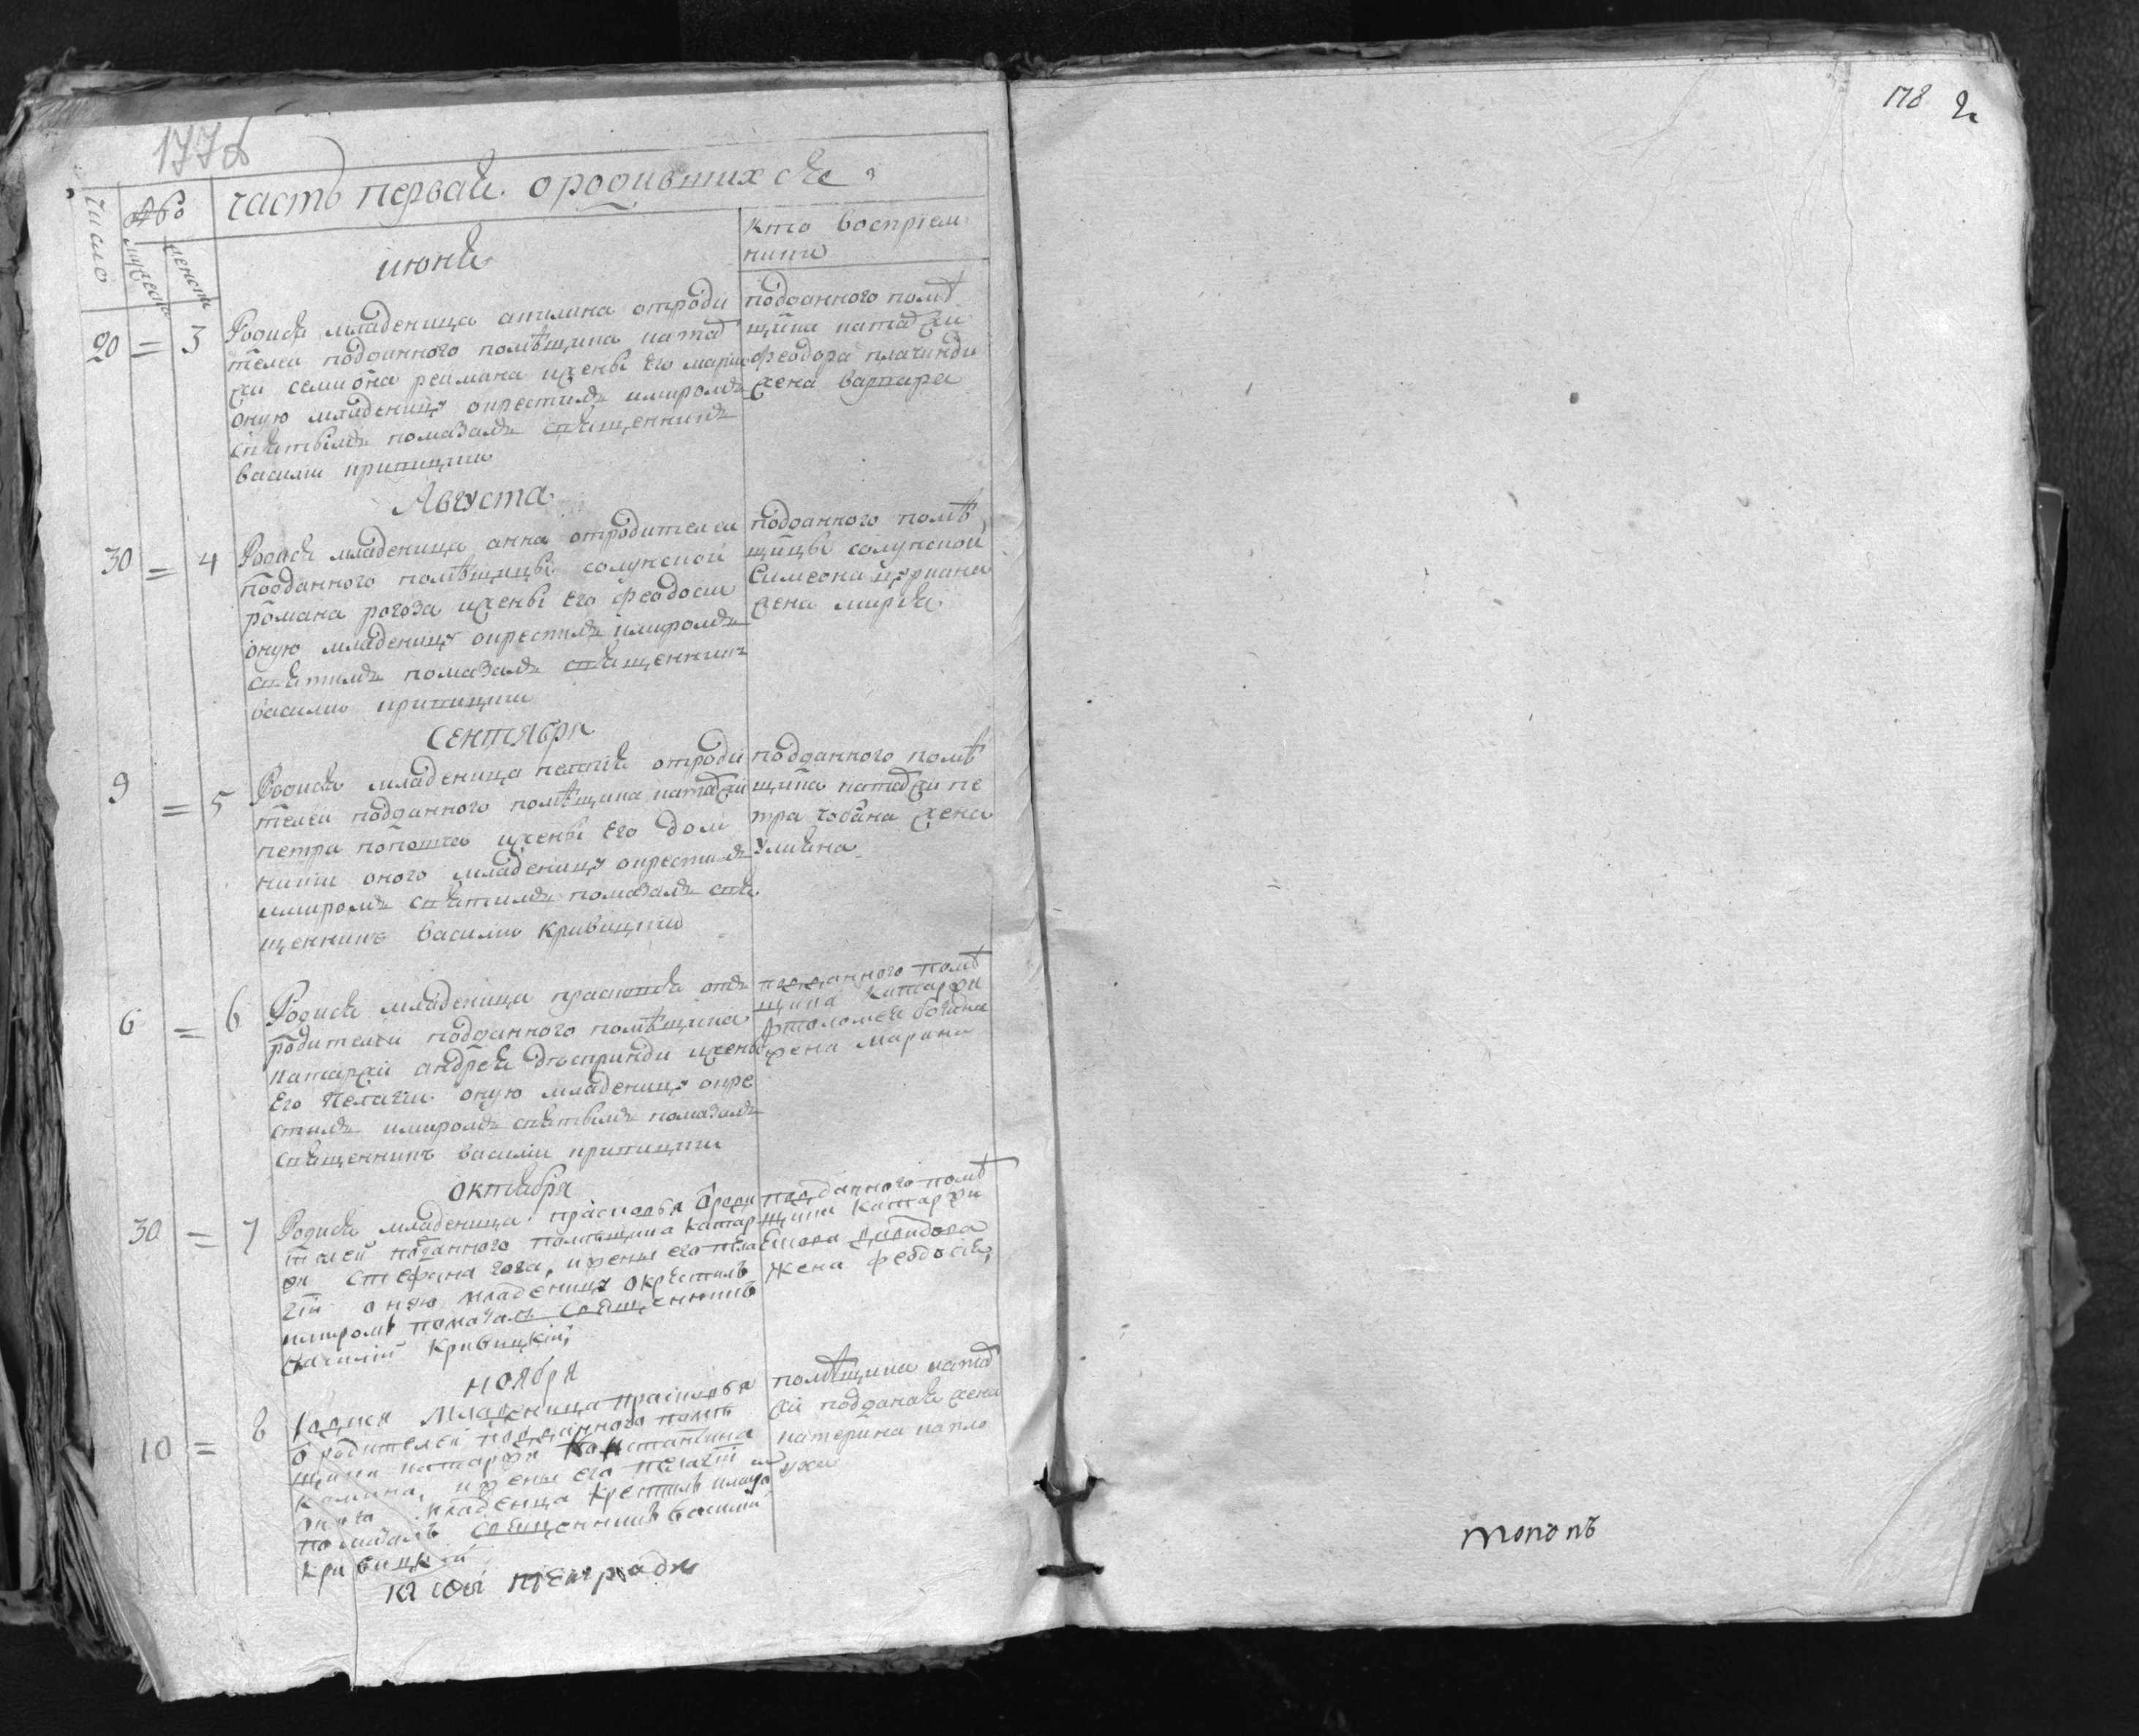 177об
178
часть первая о родившихся
число
мужеска
женска
кто восприем
ники
июня
20 = 3
Родися младеница акилина отроди
телеи подданного помѣщика катар
жи семиона реимана ижены его марии
оную младеницу окрестилъ имиромъ
святымъ помазалъ священникъ
василии кривицкии
подданного помѣ
щика катаржи
феодора плачинди
жена варвара
Августа
30 = 4
Родися младеница анна отродителеи
подданного помѣщицы солунской
романа рогоза ижены его феодосии
оную младеницу окрестилъ имиромъ
святимъ помазалъ священникъ
василии кривицкии
подданного помѣ
щицы солунской
Симеона
жена мария
Сентября
9 = 5
Родися младеница пелагия отроди
телеи подданного помѣщика катаржи
петра ижены его доми
никии оного младеницу окрестилъ
имиромъ святимъ помазалъ свя
щенникъ василии кривицкии
подданного помѣ
щика катаржи пе
тра чобана жена
улияна
6 = 6
Родися младеница праскевия отъ
родителеи подданного помѣщика
катаржи андрея ижены
его пелагии оную младеницу окре
стилъ имиромъ святымъ помазалъ
священникъ василии кривицкии
подданного помѣ
щика катаржи
жена марина
октября
30 = 7
Родися младеница прасковья ѿроди
телей подданного помѣщика катар
жи Стефана гога, ижены его пела
гіи оную младеницу окрестилъ
имиромъ помазалъ Священникъ
Василій Кривицкій,
подданного помѣ
щика катаржи
жена феодосія,
ноября
10 = 8
Родися младеница прасковья
ѿ родителей подданного помѣ
щика катаржи Константина
камина, ижены его пелагіи
оного младенца крестилъ имиро
помазалъ Священникъ василій
Кривицкій
помѣщика катар
жи подданая жена
катерина
ка сеи тетради
178 2